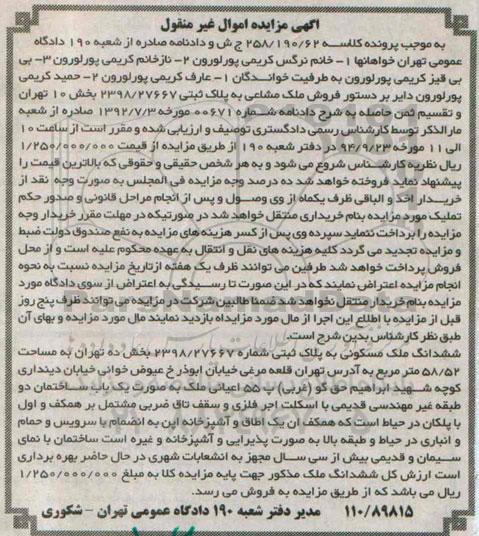 آگهی مزایده اموال غیر منقول
به موجب پرونده کلاسه ۲۵۸/۱۹۰/۶۲ ج ش و دادنامه صادره از شعبه ۱۹۰ دادگاه
عمومی تهران خواهانها ۱- خانم نرگس کریمی پورلورون ۲- نازخانم کریمی پورلورون ۳- بی
بی قیز کریمی پورلورون به طرفیت خوانــدگان ۱- عارف کریمی پورلورون ۲- حمید کریمی
پورلورون دایر بر دستور فروش ملک مشاعی به پلاک ثبتی ۲۳۹۸/۲۷۶۶۷ بخش ۱۰ تهران
و تقسیم ثمن حاصله به شرح دادنامه شــماره ۰۰۶۷۱ مورخه ۱۳۹۲/۷/۳ صادره از شعبه
مارالذکر توسط کارشناس رسمی دادگستری توصیف و ارزیابی شده و مقرر است از ساعت ۱۰
الی ۱۱ مورخه ۹۲/۹/۲۳ در دفتر شعبه ۱۹۰ از طریق مزایده از قیمت ۱/۲۵۰/۰۰۰/۰۰۰
ریال نظریه کارشــناس شروع می شود و به هر شخص حقیقی و حقوقی که بالاترین قیمت را
پیشنهاد نماید فروخته خواهد شد ده درصد وجه مزایده فی المجلس به صورت وجه نقد از
خریــدار اخذ و الباقی ظرف یکماه از وی وصــول و پس از انجام مراحل قانونی و صدور حکم
تملیک مورد مزایده بنام خریداری منتقل خواهد شد در صورتیکه در مهلت مقرر خریدار وجه
مزایده را پرداخت ننماید سپرده وی پس از کسر هزینه های مزایده به نفع صندوق دولت ضبط
و مزایده تجدید می گردد کلیه هزینه های نقل و انتقال به عهده محکوم علیه است و از محل
فروش پرداخت خواهد شد طرفین می توانند ظرف یک هفته از تاریخ مزایده نسبت به نحوه
انجام مزایده اعتراض نمایند که در این صورت تا رسیــدگی به اعتراض از سوی دادگاه مورد
مزایده بنام خریدار منتقل نخواهد شد ضمنا طالبین شرکت در مزایده می توانند ظرف پنج روز
قبل از مزایده با اطلاع این اجرا از مال مورد مزایداه بازدید نمایند مال مورد مزایده و بهای آن
طبق نظر کارشناس بدین شرح است.
ششدانگ ملک مسکونی به پلاک ثبتی شماره ۲۳۹۸/۲۷۶۶۷ بخش ده تهران به مساحت
۵۸/۵۲ متر مربع به آدرس تهران قلعه مرغی خیابان ابوذر خ عیوض خوانی خیابان دینداری
کوچه شــهید ابراهیم حق گو (غربی) پ ۵۵ اعیانی ملک به صورت یک باب ســاختمان دو
طبقه غیر مهندسی قدیمی با اسکلت اجر فلزی و سقف تاق ضربی مشتمل بر همکف و اول
با پلکان در حیاط است که همکف آن یک اطاق و آشپزخانه این به انضمام با سرویس و حمام
و انباری در حیاط و طبقه بالا به صورت پذیرایی و آشپزخانه و غیره است ساختمان با نمای
سیمان و قدیمی بیش از سی سال مجهز به انشعابات شهری در حال حاضر بهره برداری
است ارزش کل ششدانگ ملک مذکور جهت پایه مزایده کلا به مبلغ ۱/۲۵۰/۰۰۰/۰۰۰
ریال می باشد که از طریق مزایده به فروش می رسد.
۱۱۰/۸۹۸۱۵ مدیر دفتر شعبه ۱۹۰ دادگاه عمومی تهران - شکوری